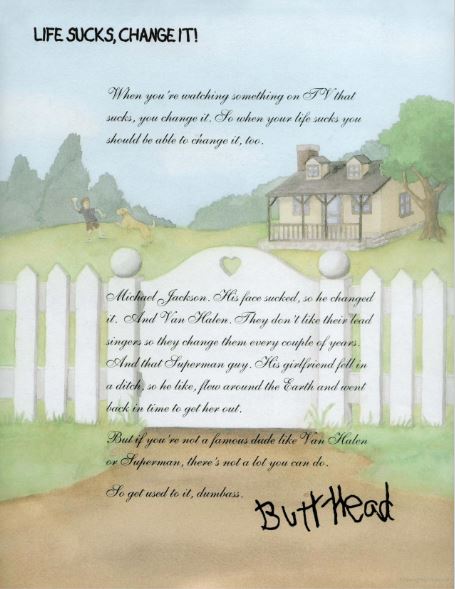 LIFE SUCKS, CHANGE IT!
When you're watching something on TV that
sucks, you change it. So when your life sucks you
should be able to change it, too.
Michael Jackson. His face sucked, so he changed
it. And Van Halen. They don't like their lead
singers so they change them every couple of years.
And that Superman guy. His girlfriend fell in
a ditch, so he like, flew around the Earth and went
back in time to get her out.
But if you're not a famous dude like Van Halen
or Superman, there's not a lot you can do.
So get used to it, dumbass.
ButtHead